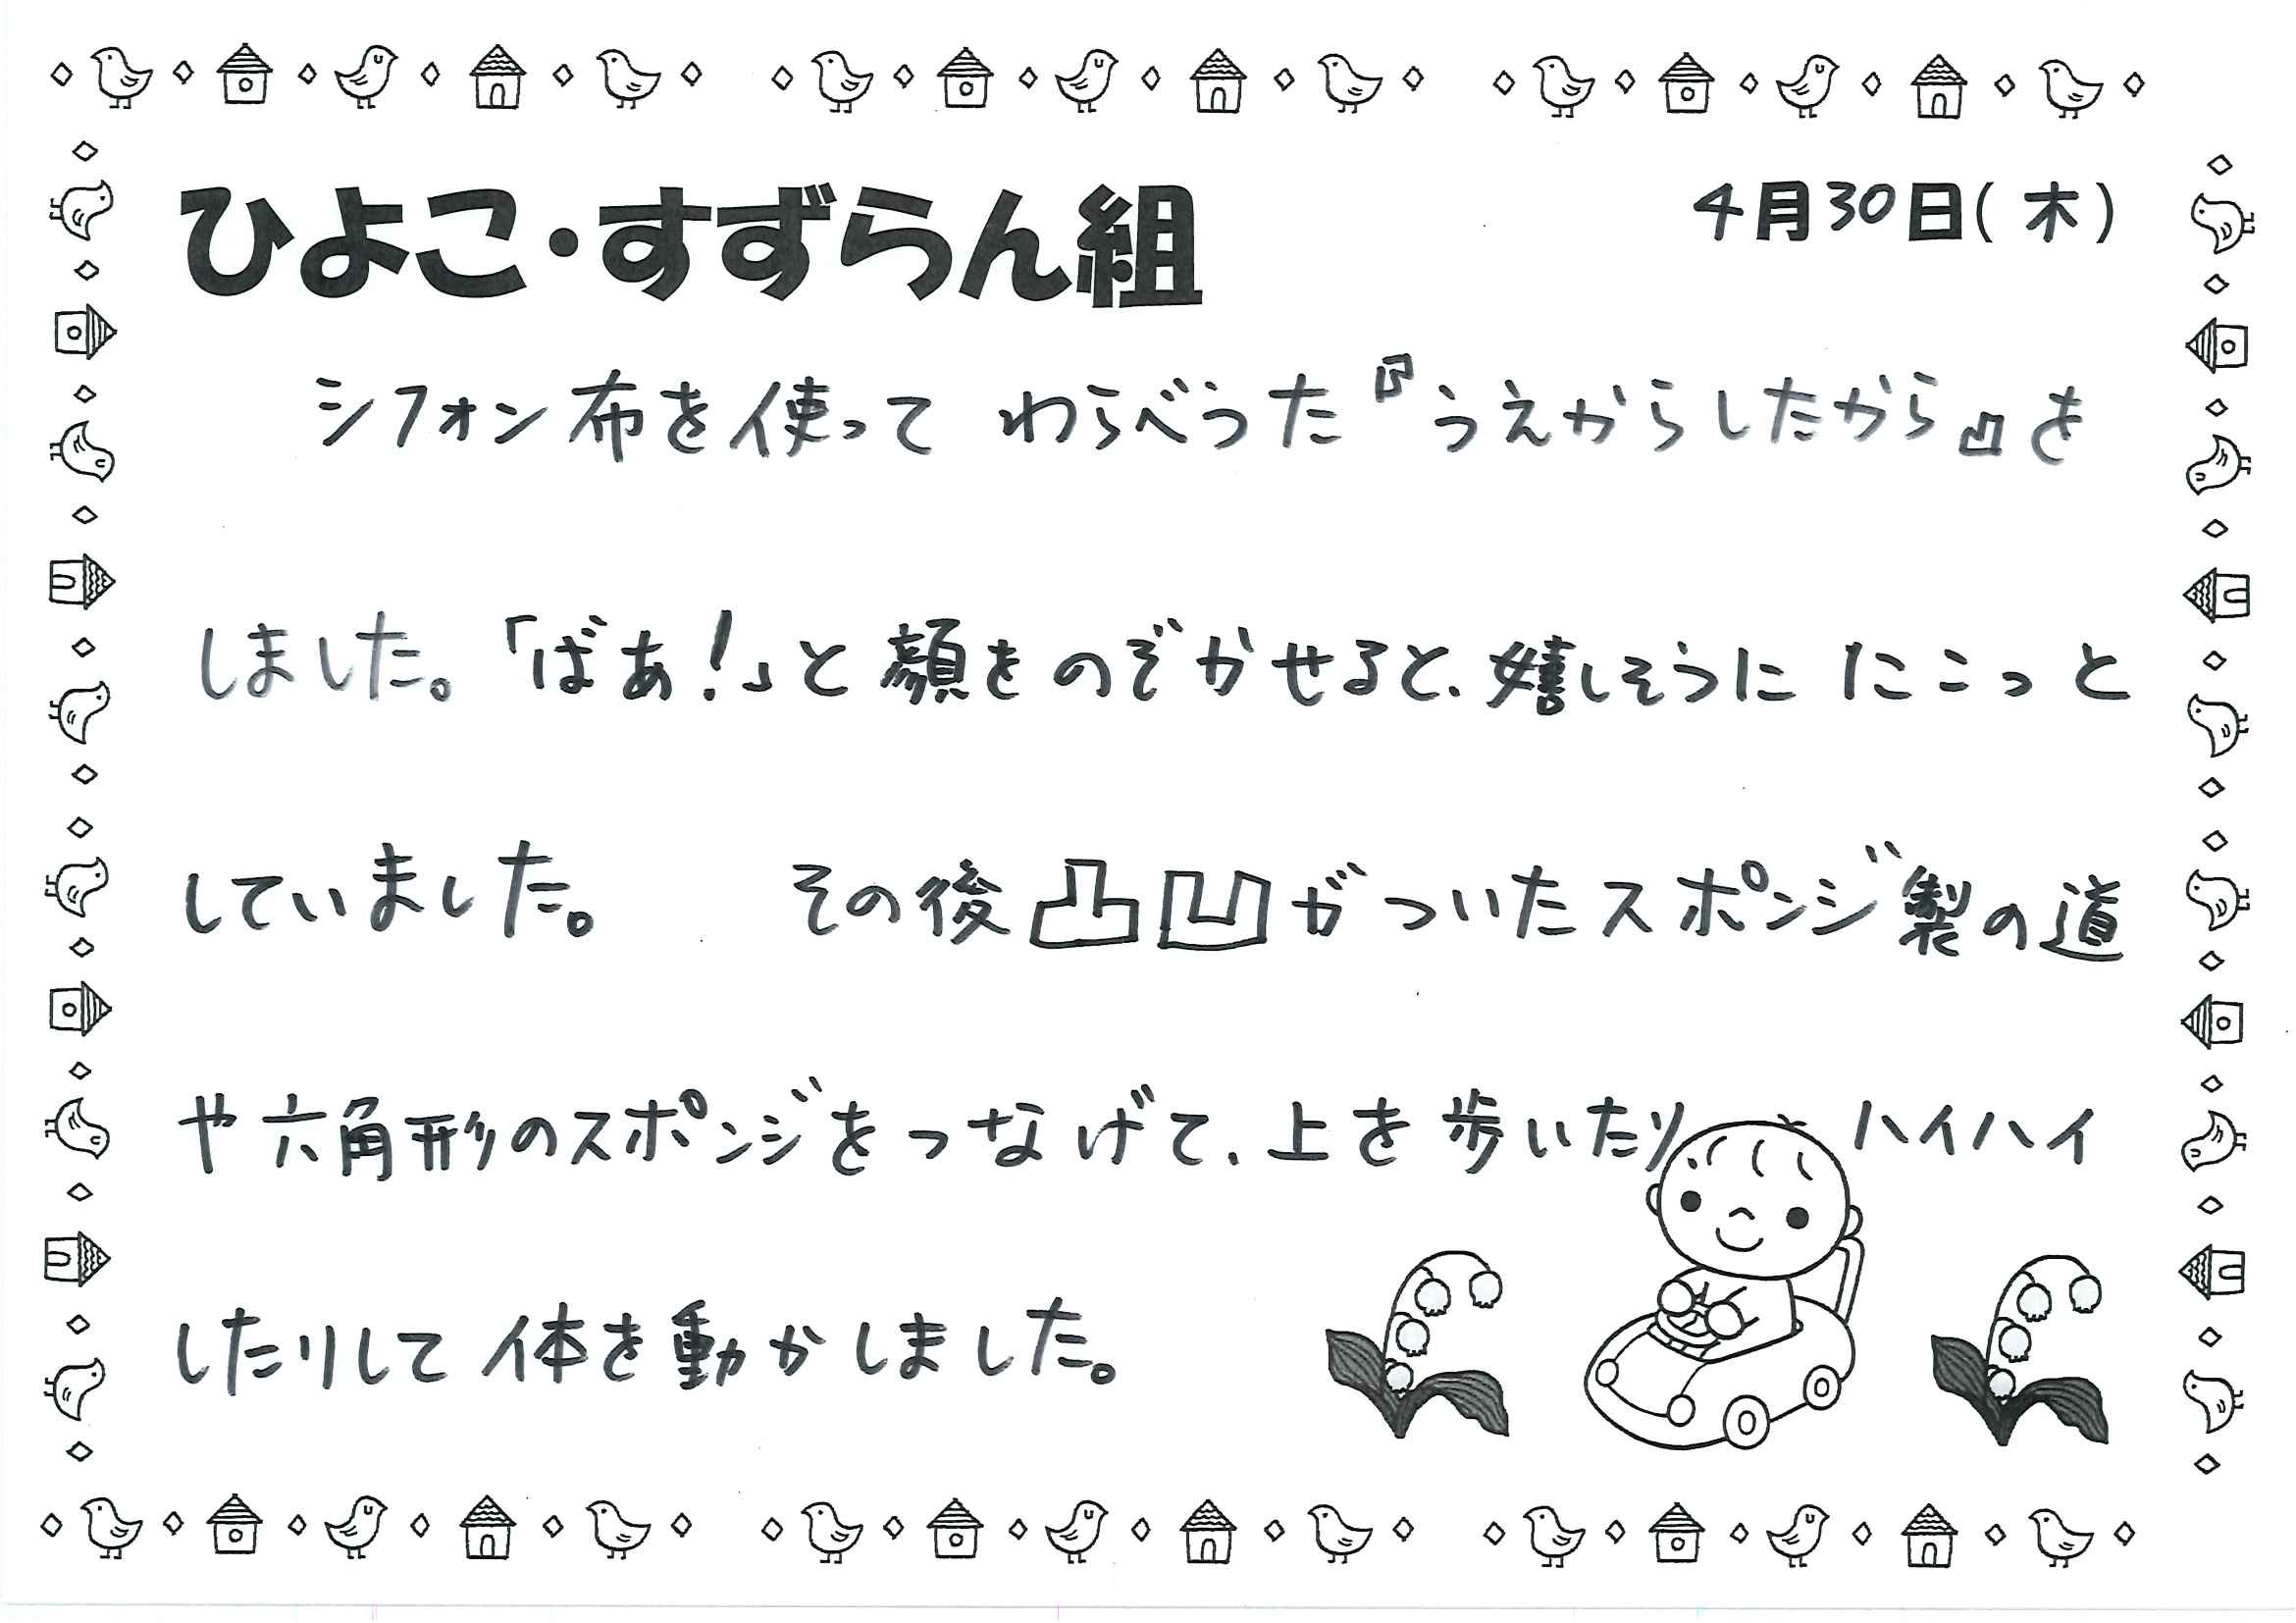 ひよこ・すずらん組
4月30日(木)
シフォン布を使って わらべうた『うえからしたから』を
しました。「ばあ!」と顔をのぞかせると、嬉しそうに にこっと
していました。 その後凸凹がついたスポンジ製の道
や六角形のスポンジをつなげて、上を歩いたり ハイハイ
したりして体を動かしました。